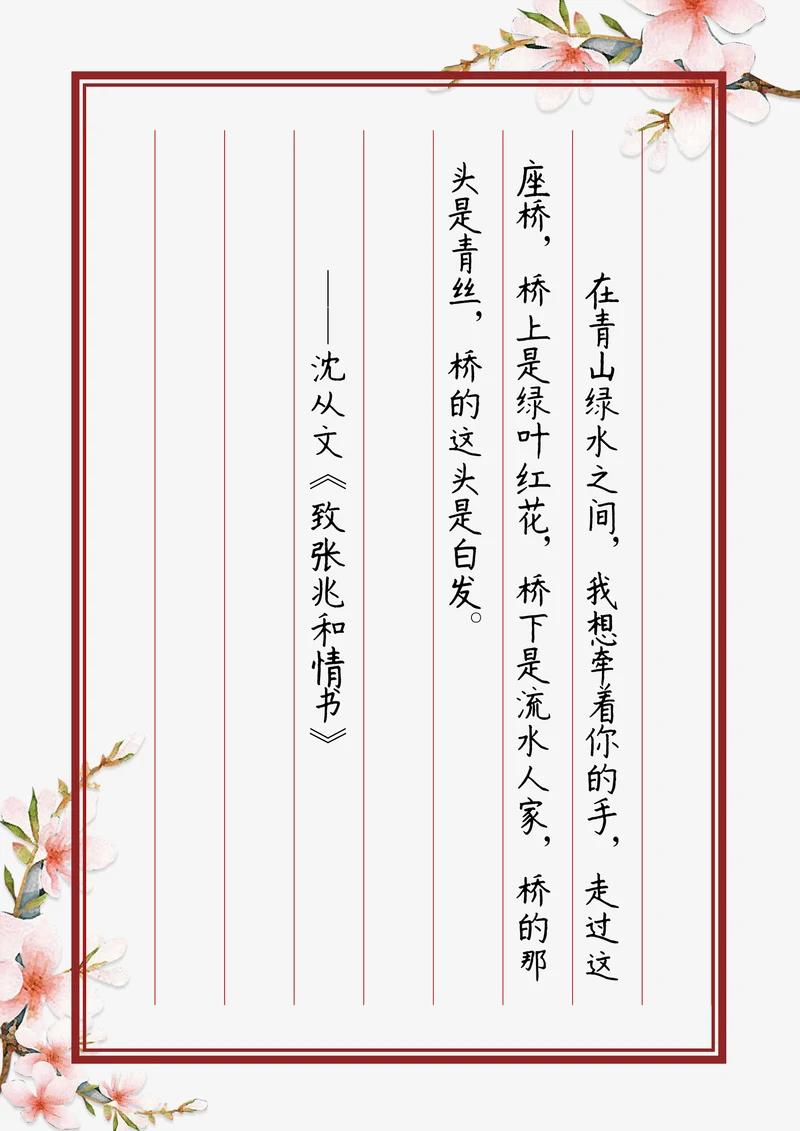 在青山绿水之间，我想牵着你的手，走过这
座桥，桥上是绿叶红花，桥下是流水人家，桥的那
头是青丝，桥的这头是白发。
——沈从文《致张兆和情书》